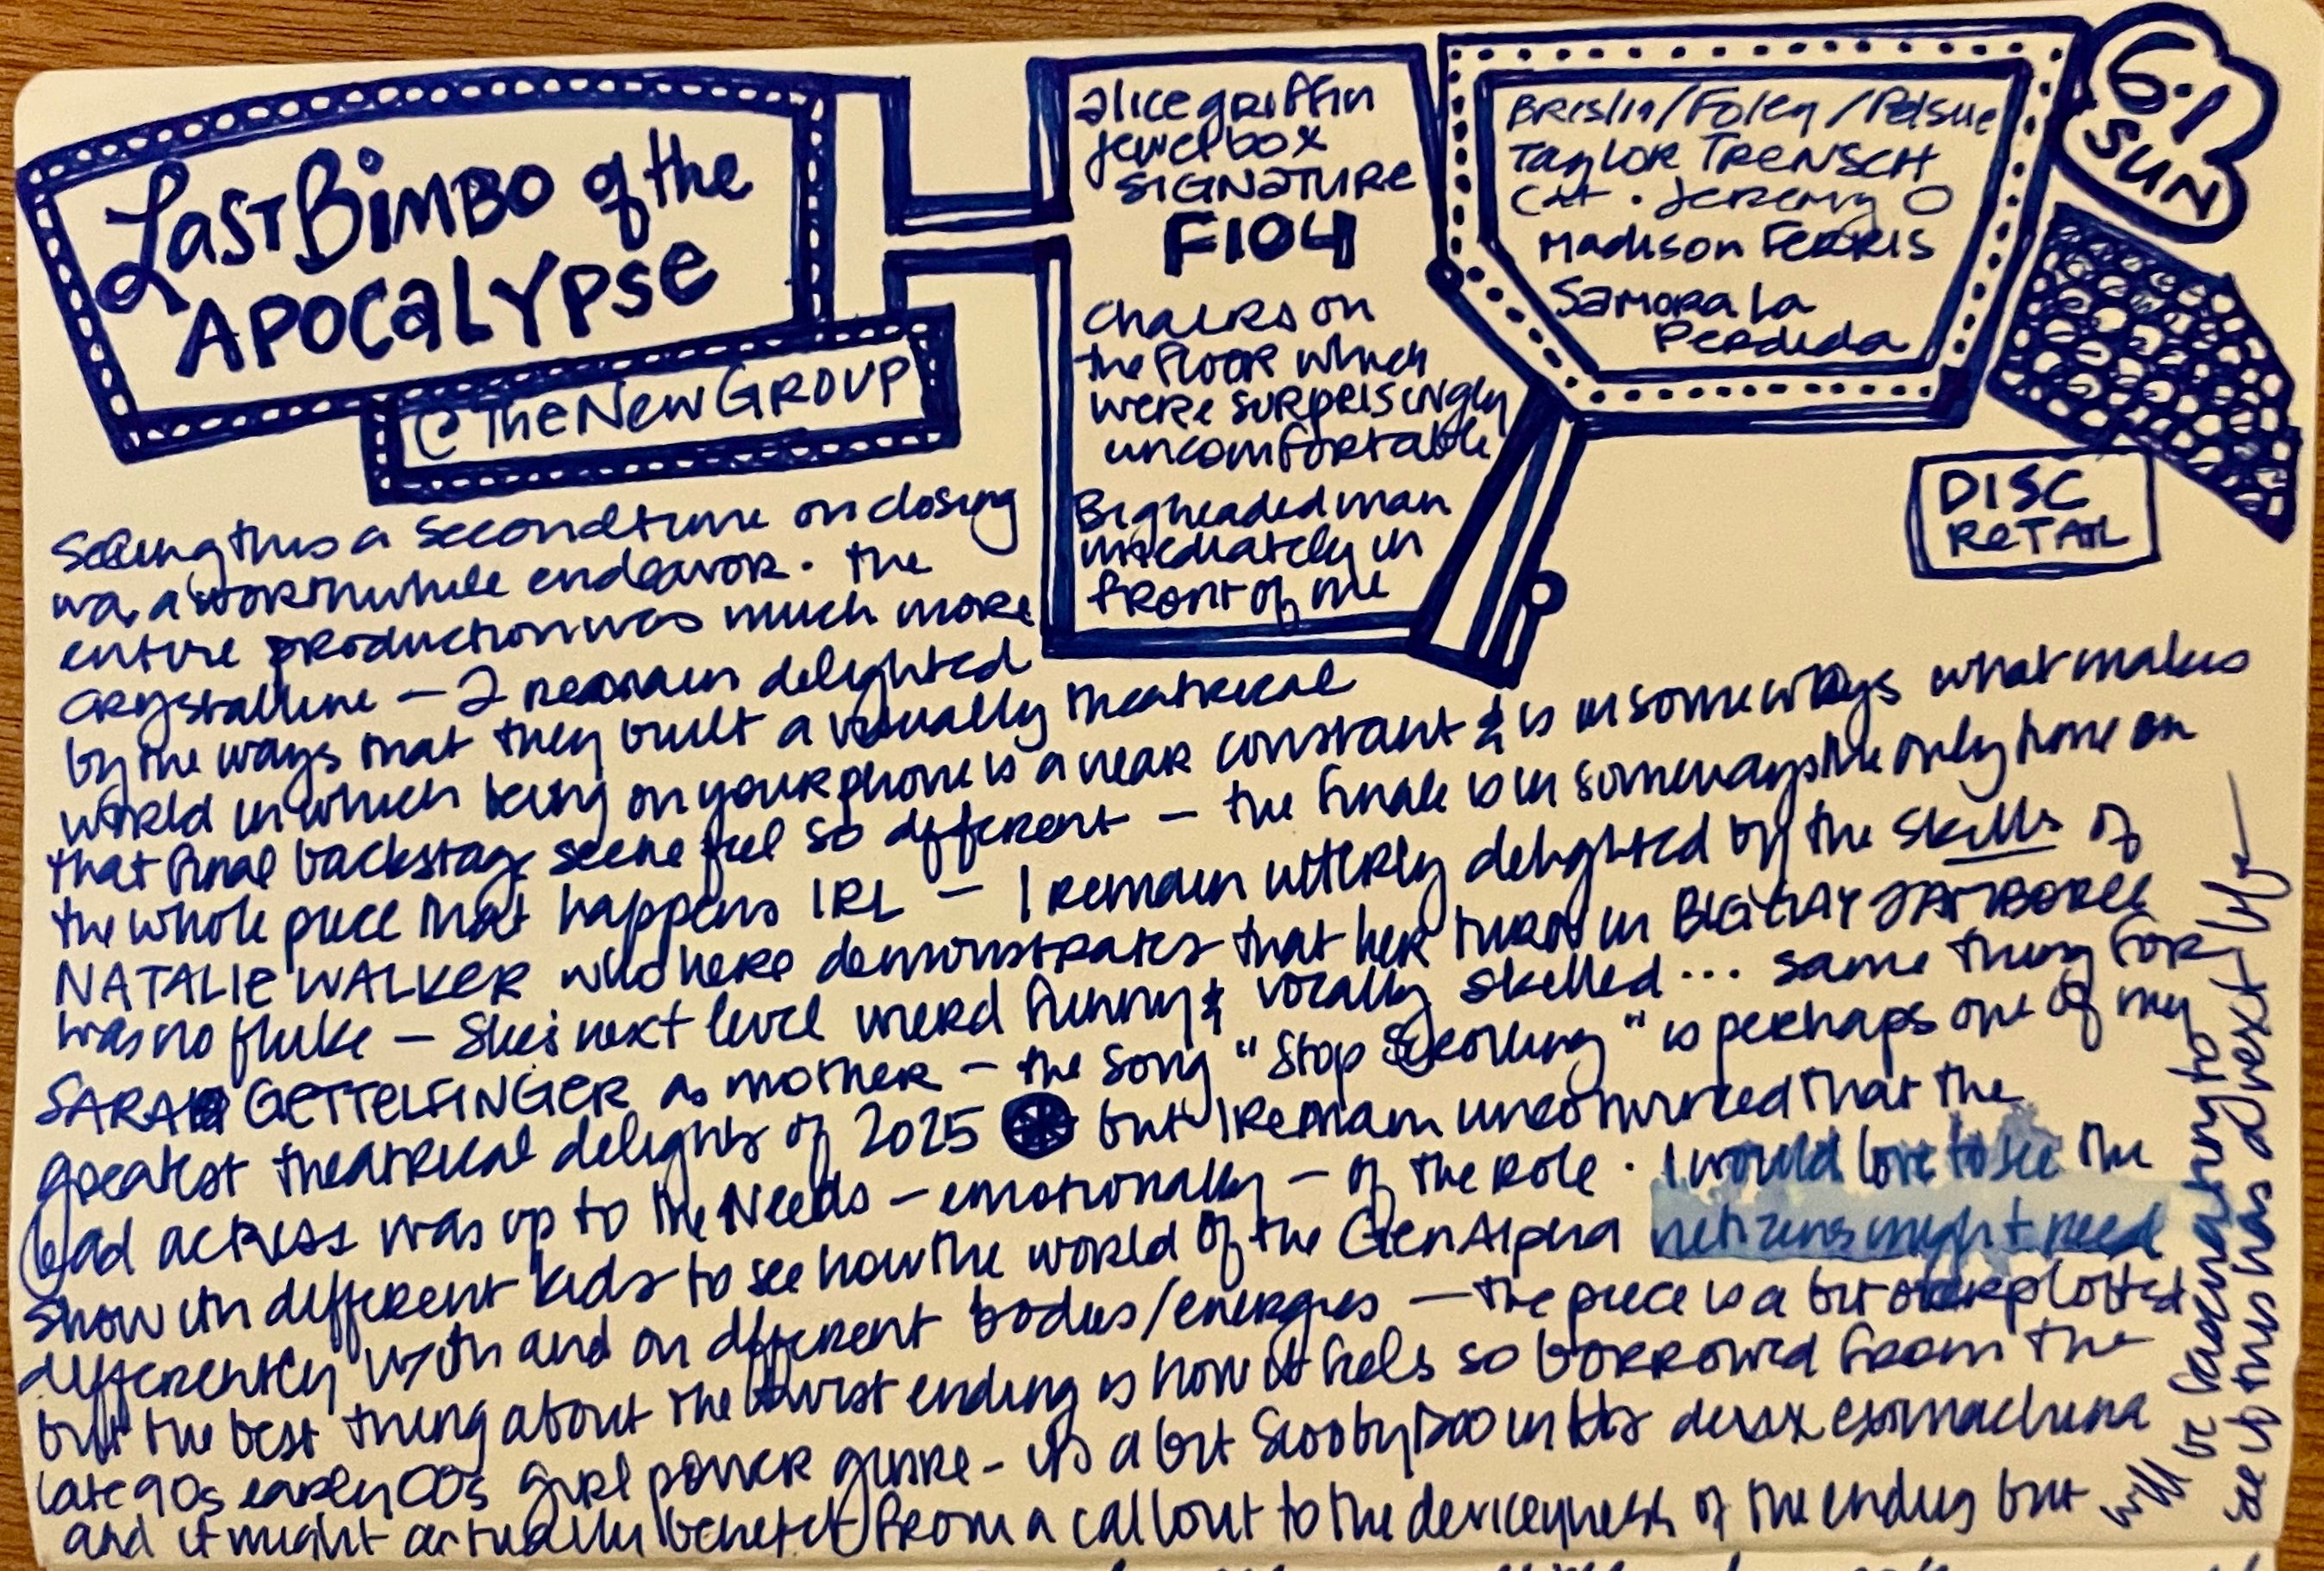 Last Bimbo of the
Apocalypse
@ The New Group
alice griffin
jewelbox
SIGNATURE
F104
chairs on
the floor which
were surprisingly
uncomfortable
Bigheaded man
immediately in
front of me
Breslin/Foley/
Taylor TRENSCH
Cat. Jeremy O
Madison Ferris
Samora la
Perdida
6.1
SUN
DISC
RETAIL
Seeing this a second time on closing
was a worthwhile endeavor. the
entire production was much more
crystalline — I remain delighted
by the ways that they built a visually theatrical
world in which being on your phone is a near constant & is in some ways what makes
that final backstage scene feel so different — the finale is in some ways the only time in
the whole piece that happens IRL — I remain utterly delighted by the skills of
NATALIE WALKER who here demonstrates that her turn in BIG GAY JAMBOREE
was no fluke — she's next level weird funny & vocally skilled... same thing for
SARAH GETTELFINGER as mother — the song "Stop Scrolling" is perhaps one of my
greatest theatrical delights of 2025 but I remain unconvinced that the
lead actress was up to the needs — emotionally — of the role. I would love to see the
show with different kids to see how the world of the Gen Alpha netizens might read
differently with and on different bodies/energies — the piece is a bit overplotted
but the best thing about the twist ending is how it feels so borrowed from the
late 90s early 00s girl power genre — it's a bit Scooby Doo in its deux ex machina
and it might actually benefit from a callout to the deviceyness of the ending but
will be fascinating to
see if this has a next life —